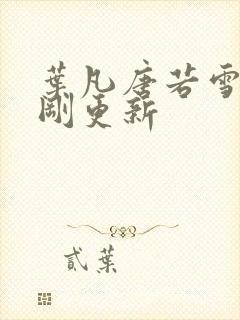 葉凡唐若雪
剛更新
貳葉